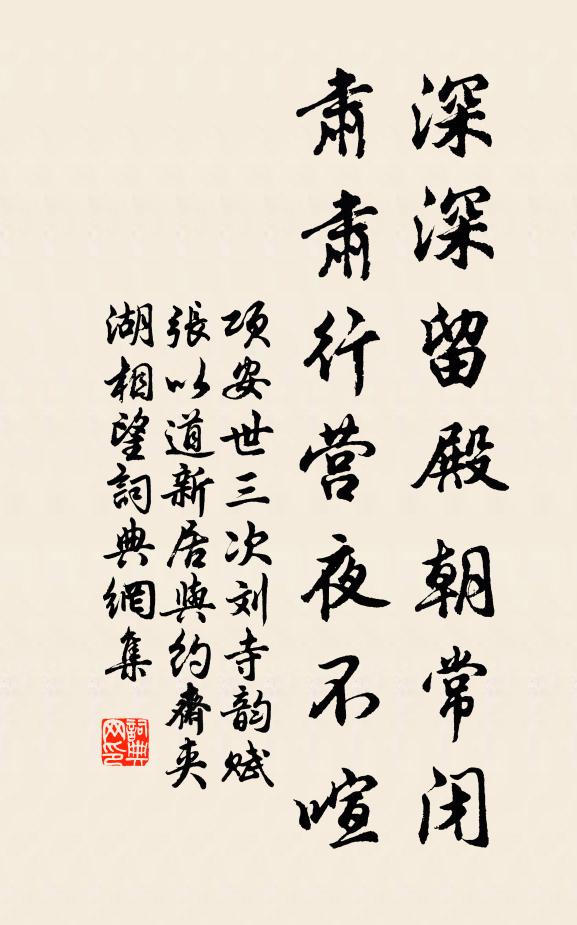 深深留殿朝常闭
肃肃行营夜不喧
项安世三次刘寺韵赋
張以道新居與约齋夹
湖相望詞典網集
詞典網印